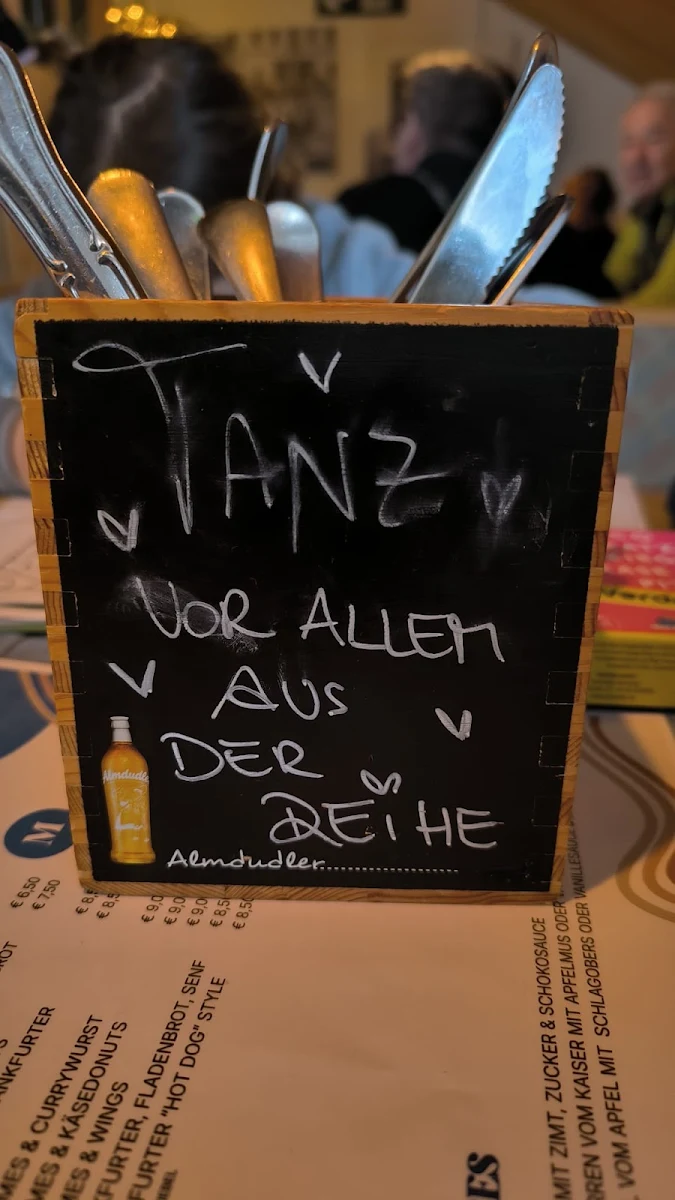 TANZ
VOR ALLEM
AUS
DER
REiHE
Almdudler
Almdudler....................
M
€ 6,50
€ 7,50
€ 8,5
€ 9,0
€ 9,0
€ 9,0
€ 8,5
€ 8,5
MES & CURRYWURST
MES & KÄSEDONUTS
MES & WINGS
KFURTER, FLADENBROT, SENF
FURTER "HOT DOG" STYLE
MIT ZIMT, ZUCKER & SCHOKOSAUCE
REN VOM KAISER MIT APFELMUS ODER
VOM APFEL MIT SCHLAGOBERS ODER VANILLESAUCE
ES